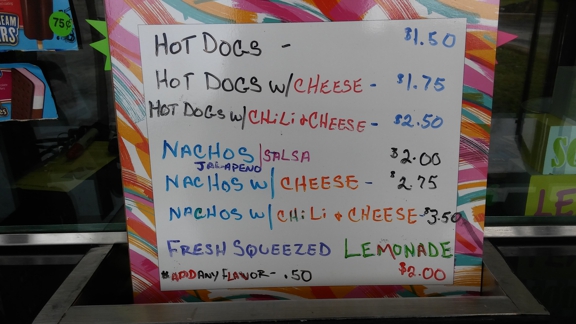 EAM
75¢
HOT DOGS - $1.50
HOT DOGS W/CHEESE - $1.75
HOT DOGS W/CHiLi & CHEESE - $2.50
NACHOS/SALSA $2.00
JALAPENO
NACHOS W/ CHEESE - $2.75
NACHOS W/ CHiLi & CHEESE - $3.50
FRESH SQUEEZED LEMONADE
*ADD ANY FLAVOR - .50 $2.00
LE